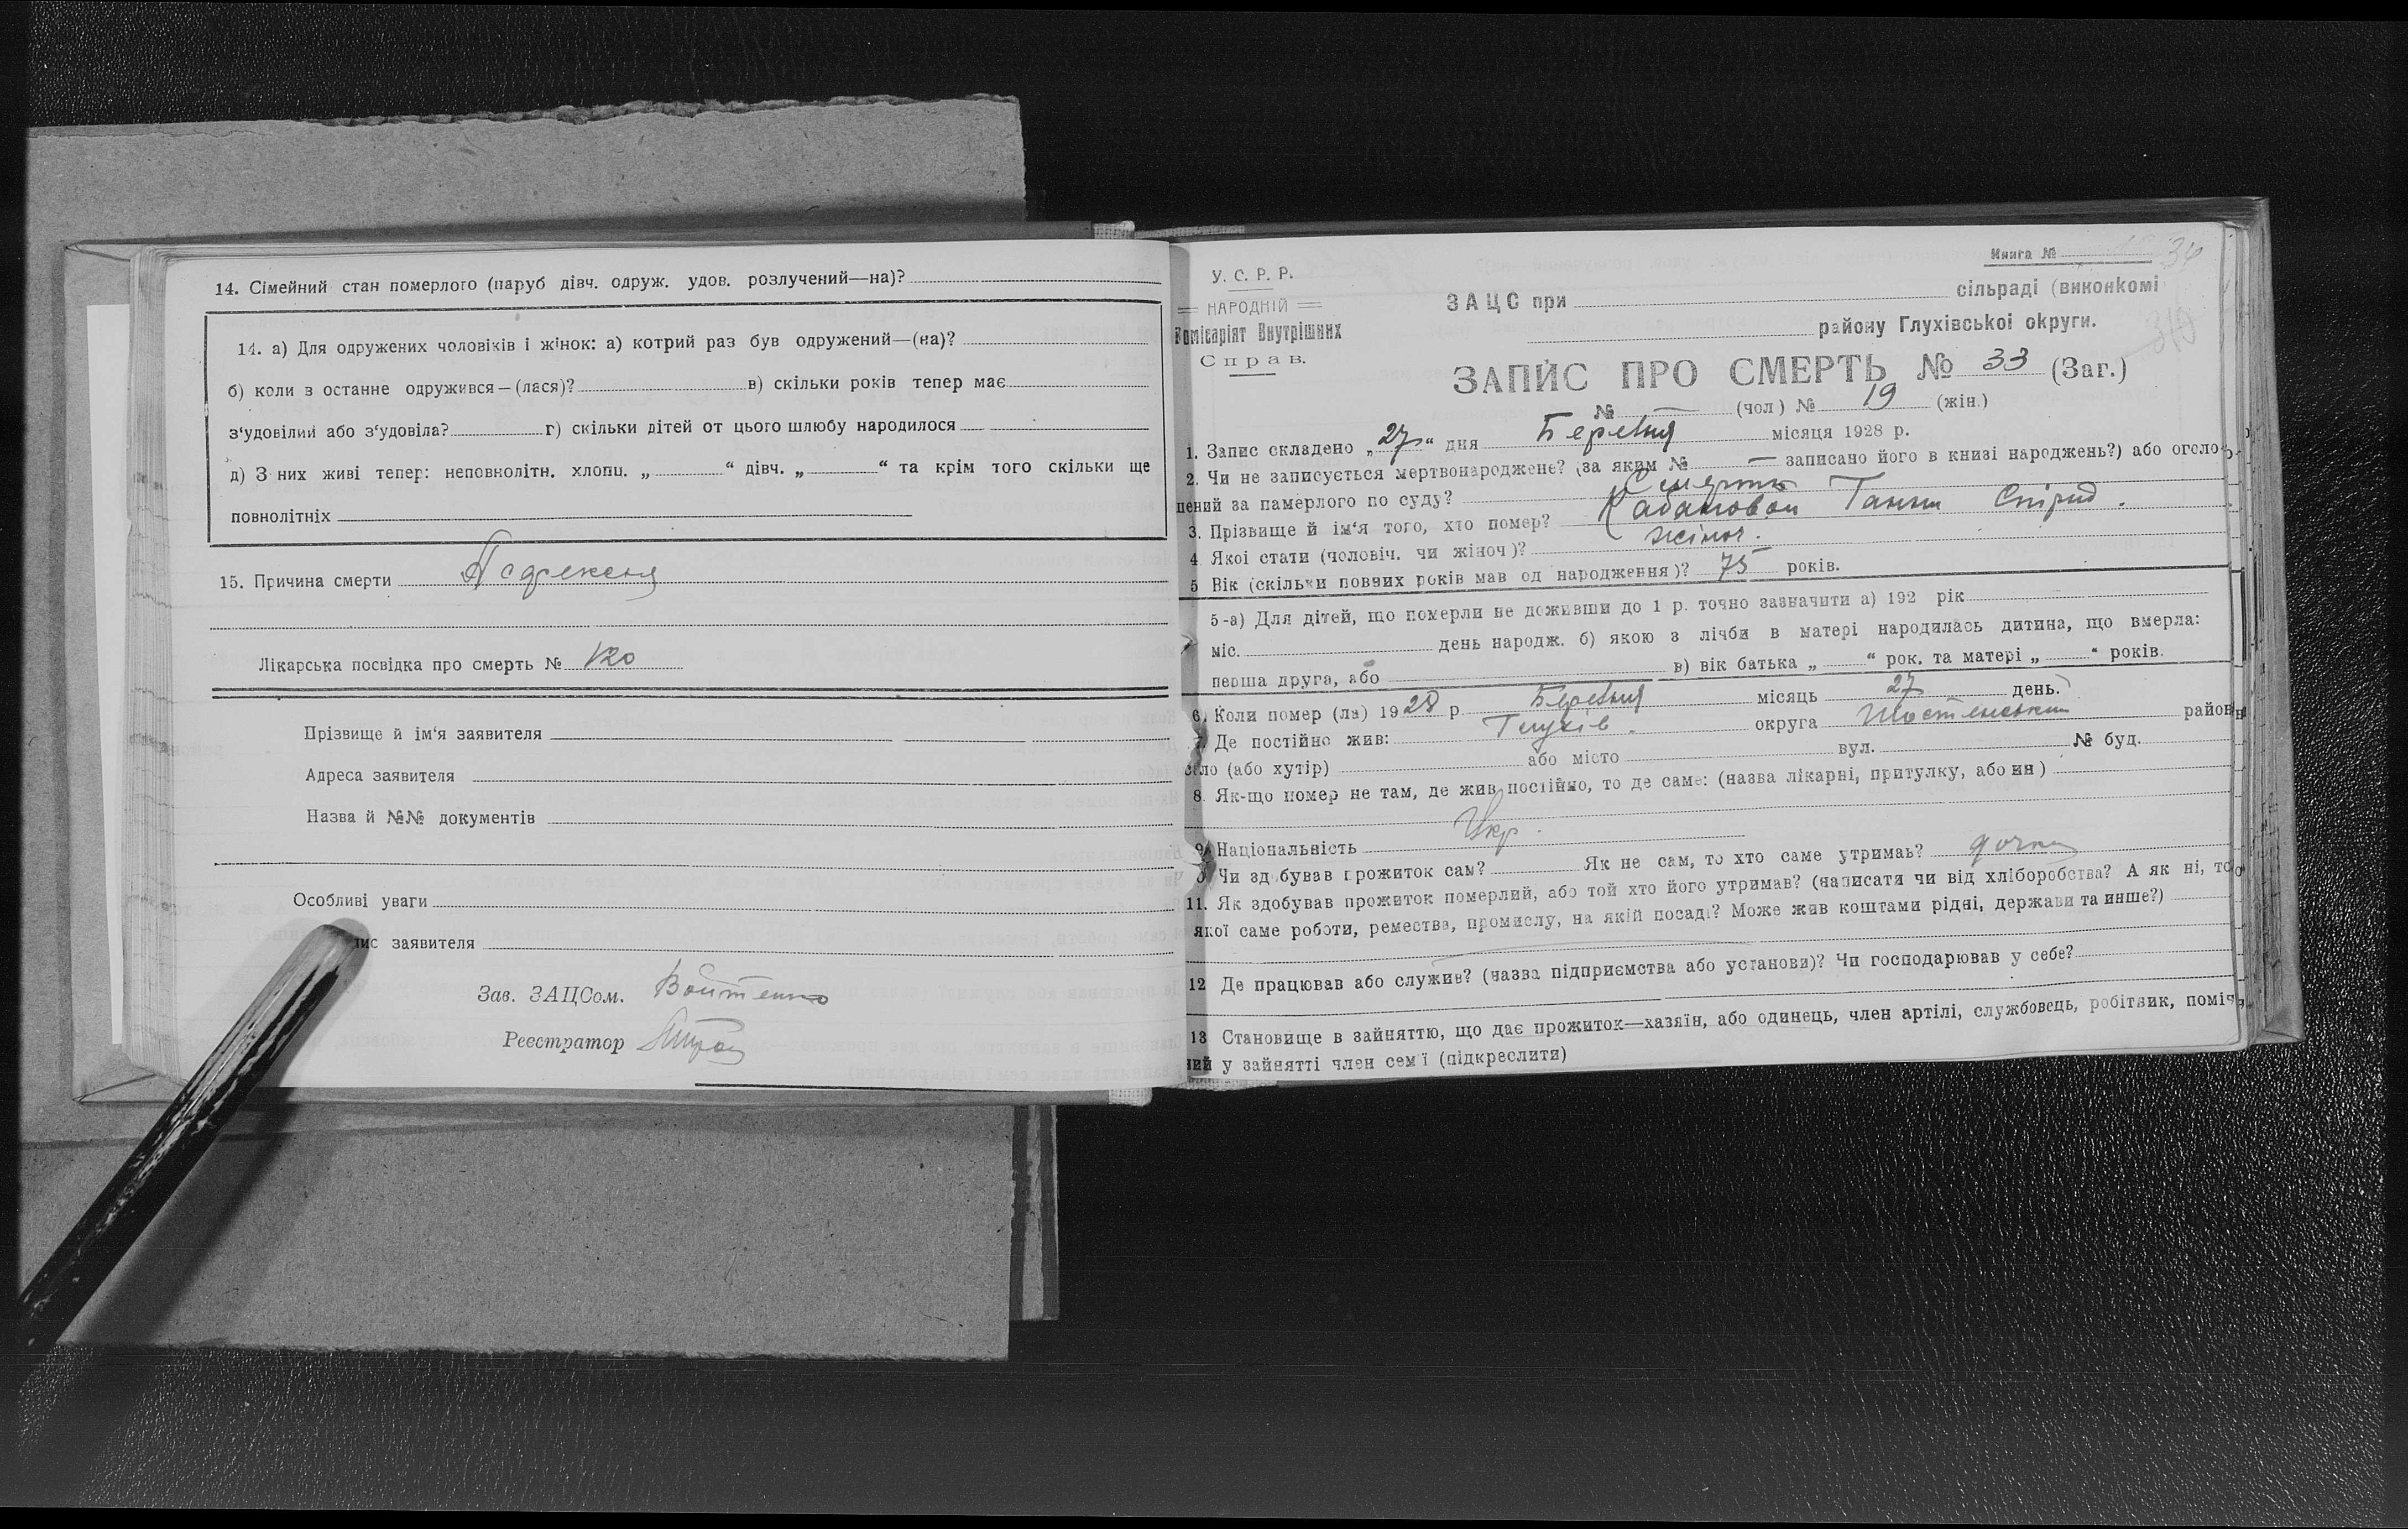 14. Сімейний стан померлого (паруб дівч. одруж. удов. розлучений—на)?
14. а) Для одружених чоловіків і жінок: а) котрий раз був одружений—(на)?
б) коли в останне одружився—(лася)? в) скільки років тепер має
з‘удовілий або з‘удовіла? г) скільки дітей от цього шлюбу народилося
д) З них живі тепер: неповнолітн. хлопц. „ “ дівч. „ “ та крім того скільки ще
повнолітніх
15. Причина смерти
Лікарська посвідка про смерть № 120
Прізвище й ім‘я заявителя
Адреса заявителя
Назва й №№ документів
Особливі уваги
ис заявителя
Зав. ЗАЦСом. Войтенко
Реєстратор
Книга № 34
У. С. Р. Р.
НАРОДНІЙ
Комісаріят Внутрішних
Справ.
ЗАЦС при сільраді (виконкомі
району Глухівської округи.
ЗАПИС ПРО СМЕРТЬ № 33 (Заг.)
№ — (чол) № 19 (жін.)
1. Запис складено „27“ дня Березня місяця 1928 р.
2. Чи не записується мертвонароджене? (за яким № — записано його в книзі народжень?) або оголо-
шений за памерлого по суду? Смерть
3. Прізвище й ім‘я того, хто помер? Кабановой Ганни Спірид.
4 Якої стати (чоловіч. чи жіноч)? жіноч.
5 Вік (скільки повних років мав од народження)? 75 років.
5-а) Для дітей, що померли не доживши до 1 р. точно зазначити а) 192 рік
міс. день народж. б) якою з лічби в матері народилась дитина, що вмерла:
перша друга, або в) вік батька „ “ рок. та матері „ “ років.
6) Коли помер (ла) 1928 р. Березня місяць 27 день.
7. Де постійно жив: Глухів. округа Шостенський район
село (або хутір) або місто вул. № буд.
8. Як-що помер не там, де жив постійно, то де саме: (назва лікарні, притулку, або ин)
9. Національність Укр.
Чи здобував прожиток сам? Як не сам, то хто саме утримаь? дочка
11. Як здобував прожиток померлий, або той хто його утримав? (написати чи від хліборобства? А як ні, то
якої саме роботи, ремества, промислу, на якій посаді? Може жив коштами рідні, держави та инше?)
12 Де працював або служив? (назва підприємства або установи)? Чи господарював у себе?
13 Становище в зайняттю, що дає прожиток—хазяїн, або одинець, член артілі, службовець, робітник, поміч-
ний у зайнятті член сем‘ї (підкреслити)